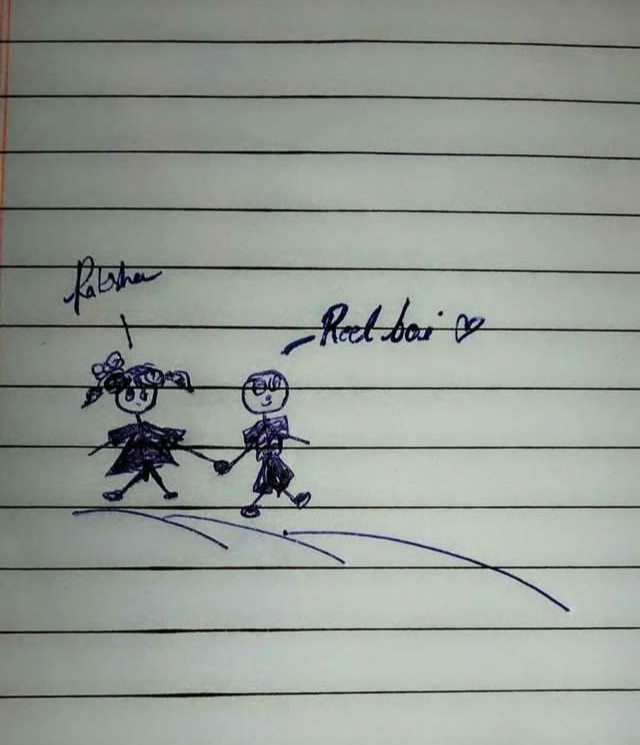 Raksha
Reel boi ♡